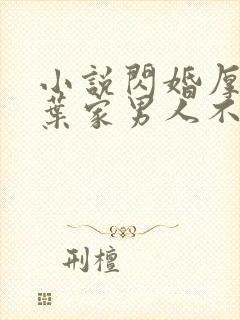 小說閃婚厚
葉家男人不
刑檀